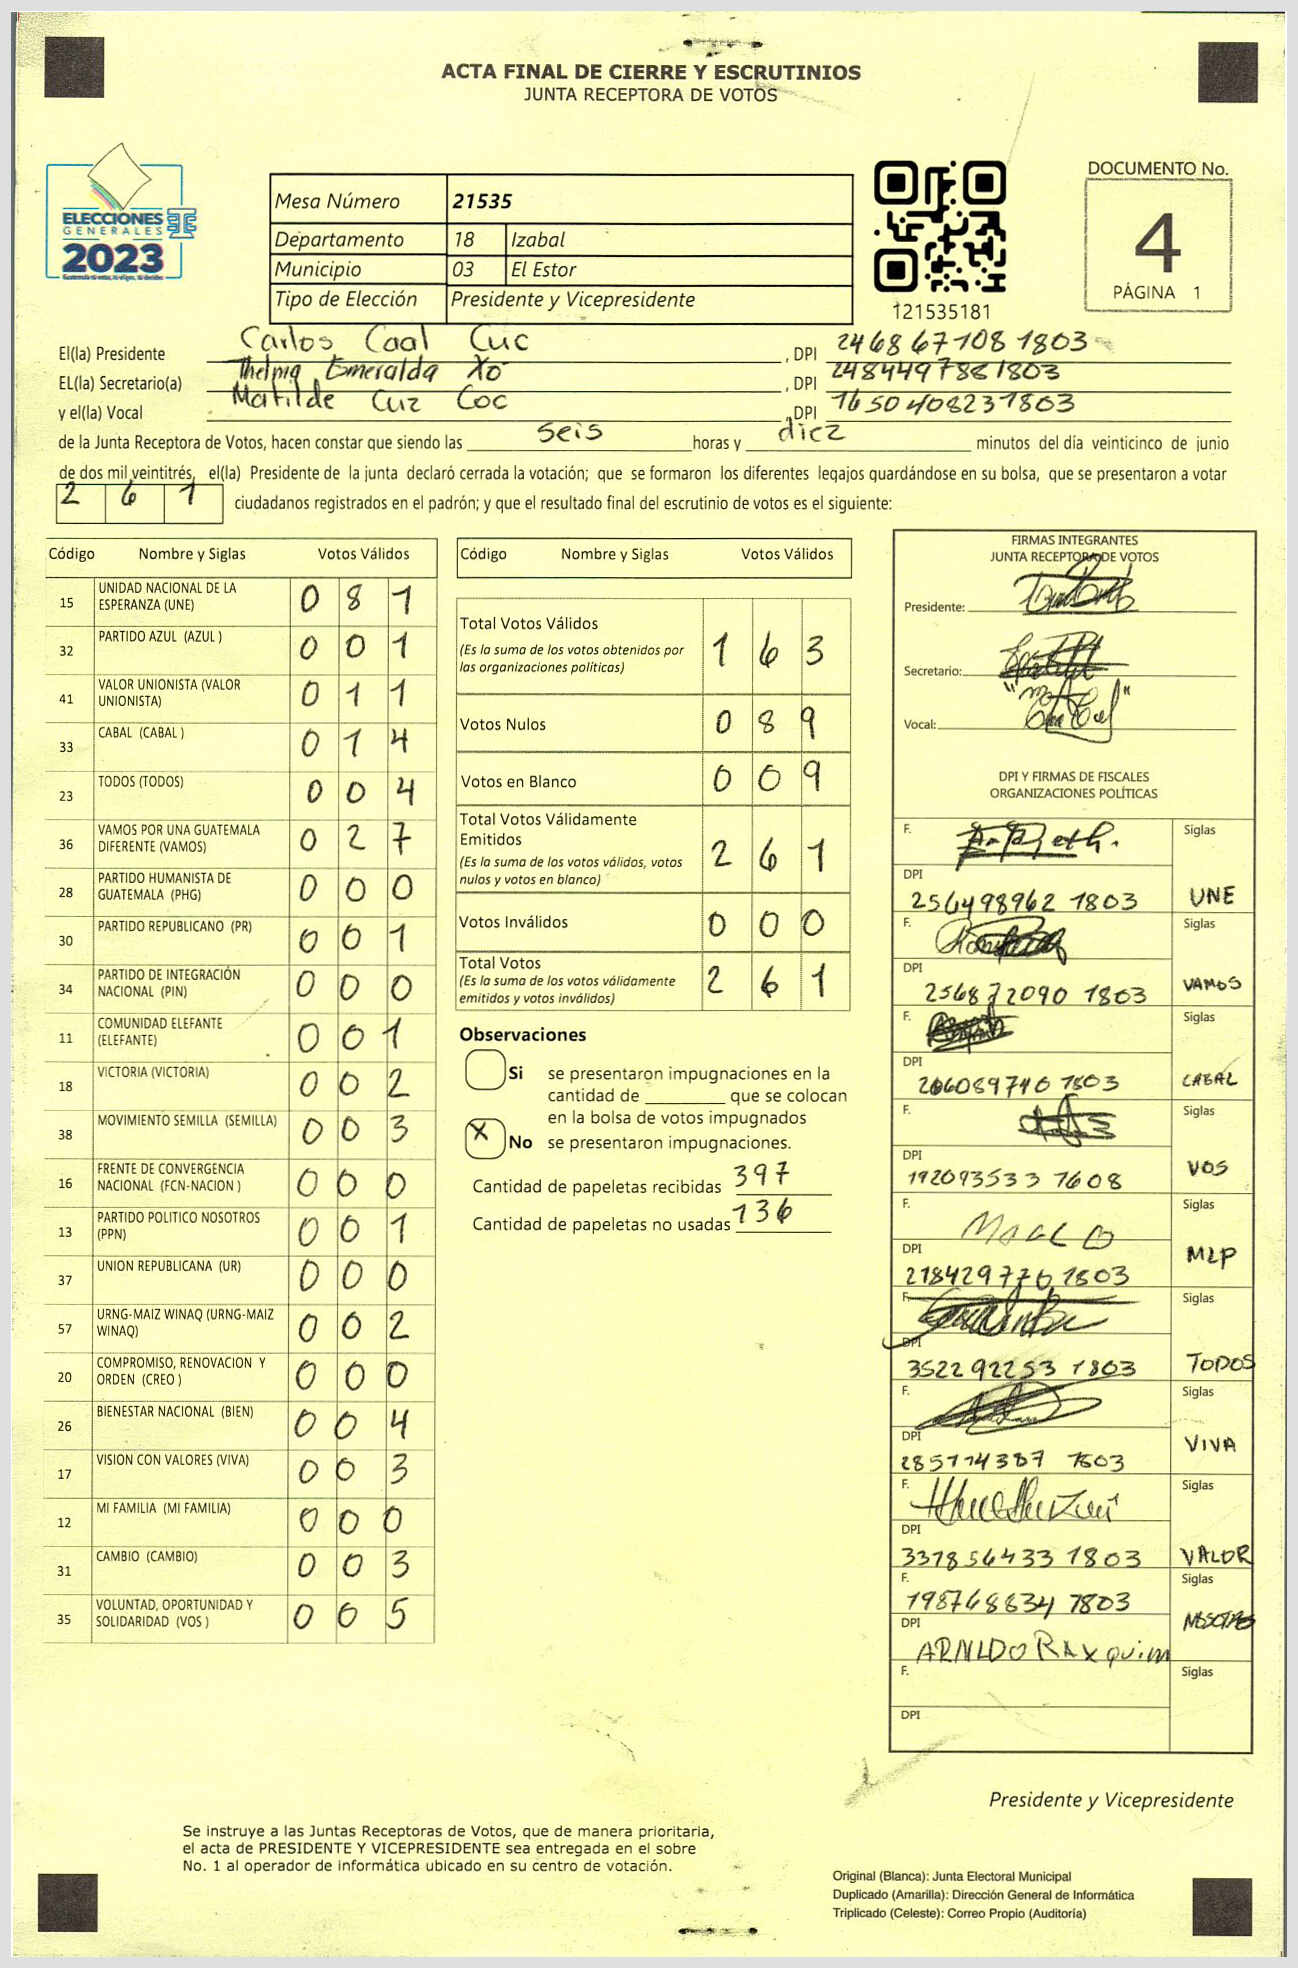 ACTA FINAL DE CIERRE Y ESCRUTINIOS
JUNTA RECEPTORA DE VOTOS
ELECCIONES
GENERALES
2023
Mesa Número 21535
Departamento 18 Izabal
Municipio 03 El Estor
Tipo de Elección Presidente y Vicepresidente
121535181
DOCUMENTO No.
4
PÁGINA 1
El(la) Presidente Carlos Caal Cuc , DPI 2468671081803
EL(la) Secretario(a) Thelma Esmeralda Xó , DPI 2484497881803
y el(la) Vocal Matilde Cuz Coc , DPI 1650408231803
de la Junta Receptora de Votos, hacen constar que siendo las seis horas y diez minutos del día veinticinco de junio
de dos mil veintitrés, el(la) Presidente de la junta declaró cerrada la votación; que se formaron los diferentes legajos quardándose en su bolsa, que se presentaron a votar
261 ciudadanos registrados en el padrón; y que el resultado final del escrutinio de votos es el siguiente:
Código Nombre y Siglas Votos Válidos
15 UNIDAD NACIONAL DE LA ESPERANZA (UNE) 081
32 PARTIDO AZUL (AZUL ) 001
41 VALOR UNIONISTA (VALOR UNIONISTA) 011
33 CABAL (CABAL ) 014
23 TODOS (TODOS) 004
36 VAMOS POR UNA GUATEMALA DIFERENTE (VAMOS) 027
28 PARTIDO HUMANISTA DE GUATEMALA (PHG) 000
30 PARTIDO REPUBLICANO (PR) 001
34 PARTIDO DE INTEGRACIÓN NACIONAL (PIN) 000
11 COMUNIDAD ELEFANTE (ELEFANTE) 001
18 VICTORIA (VICTORIA) 002
38 MOVIMIENTO SEMILLA (SEMILLA) 003
16 FRENTE DE CONVERGENCIA NACIONAL (FCN-NACION ) 000
13 PARTIDO POLITICO NOSOTROS (PPN) 001
37 UNION REPUBLICANA (UR) 000
57 URNG-MAIZ WINAQ (URNG-MAIZ WINAQ) 002
20 COMPROMISO, RENOVACION Y ORDEN (CREO ) 000
26 BIENESTAR NACIONAL (BIEN) 004
17 VISION CON VALORES (VIVA) 003
12 MI FAMILIA (MI FAMILIA) 000
31 CAMBIO (CAMBIO) 003
35 VOLUNTAD, OPORTUNIDAD Y SOLIDARIDAD (VOS ) 005
Código Nombre y Siglas Votos Válidos
Total Votos Válidos 163
(Es la suma de los votos obtenidos por
las organizaciones politicas)
Votos Nulos 089
Votos en Blanco 009
Total Votos Válidamente
Emitidos 261
(Es la suma de los votos válidos, votos
nulos y votos en blanco)
Votos Inválidos 000
Total Votos 261
(Es la suma de los votos válidamente
emitidos y votos inválidos)
Observaciones
Si se presentaron impugnaciones en la
cantidad de ________ que se colocan
en la bolsa de votos impugnados
X No se presentaron impugnaciones.
Cantidad de papeletas recibidas 397
Cantidad de papeletas no usadas 136
FIRMAS INTEGRANTES
JUNTA RECEPTORA DE VOTOS
Presidente:
Secretario:
Vocal:
DPI Y FIRMAS DE FISCALES
ORGANIZACIONES POLÍTICAS
F. Siglas
DPI
256498962 1803 UNE
F. Siglas
DPI
256872090 1803 VAMOS
F. Siglas
DPI
206089740 1803 CABAL
F. Siglas
DPI
192093533 1608 VOS
F. Siglas
DPI
218429776 1803 MLP
F. Siglas
DPI
352292253 1803 TODOS
F. Siglas
DPI
285114387 1803 VIVA
F. Siglas
DPI
337856433 1803 VALOR
F. Siglas
198768834 1803 NOSOTROS
DPI
ARNLDO RAXquim
F. Siglas
DPI
Presidente y Vicepresidente
Se instruye a las Juntas Receptoras de Votos, que de manera prioritaria,
el acta de PRESIDENTE Y VICEPRESIDENTE sea entregada en el sobre
No. 1 al operador de informática ubicado en su centro de votación.
Original (Blanca): Junta Electoral Municipal
Duplicado (Amarilla): Dirección General de Informática
Triplicado (Celeste): Correo Propio (Auditoría)